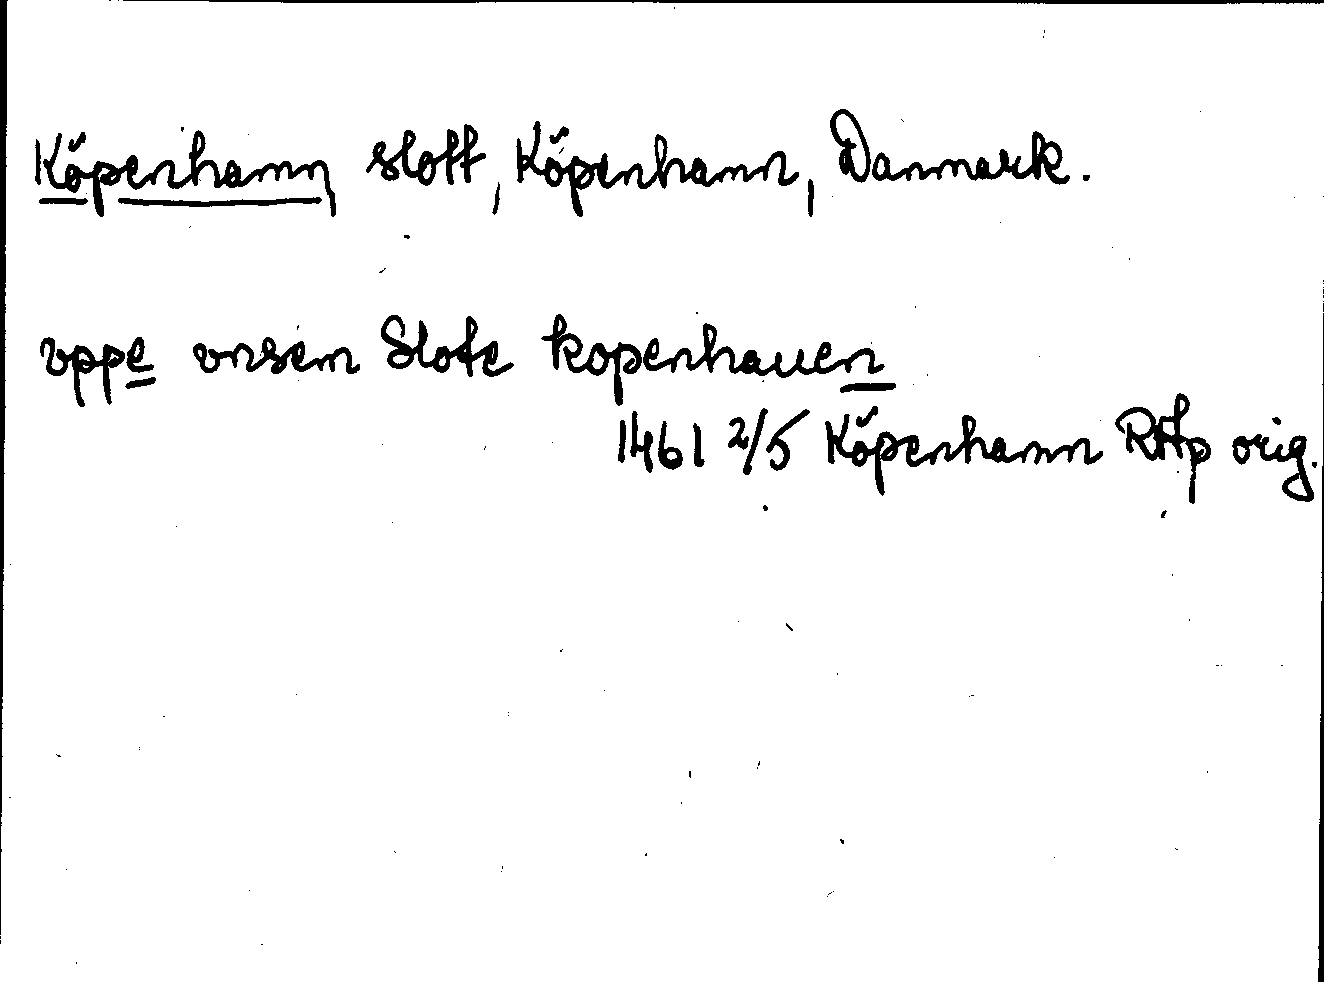 Köpenhamn slott, Köpenhamn, Danmark.
vppe vnsem Slote kopenhauen
1461 2/5 Köpenhamn RAp orig.